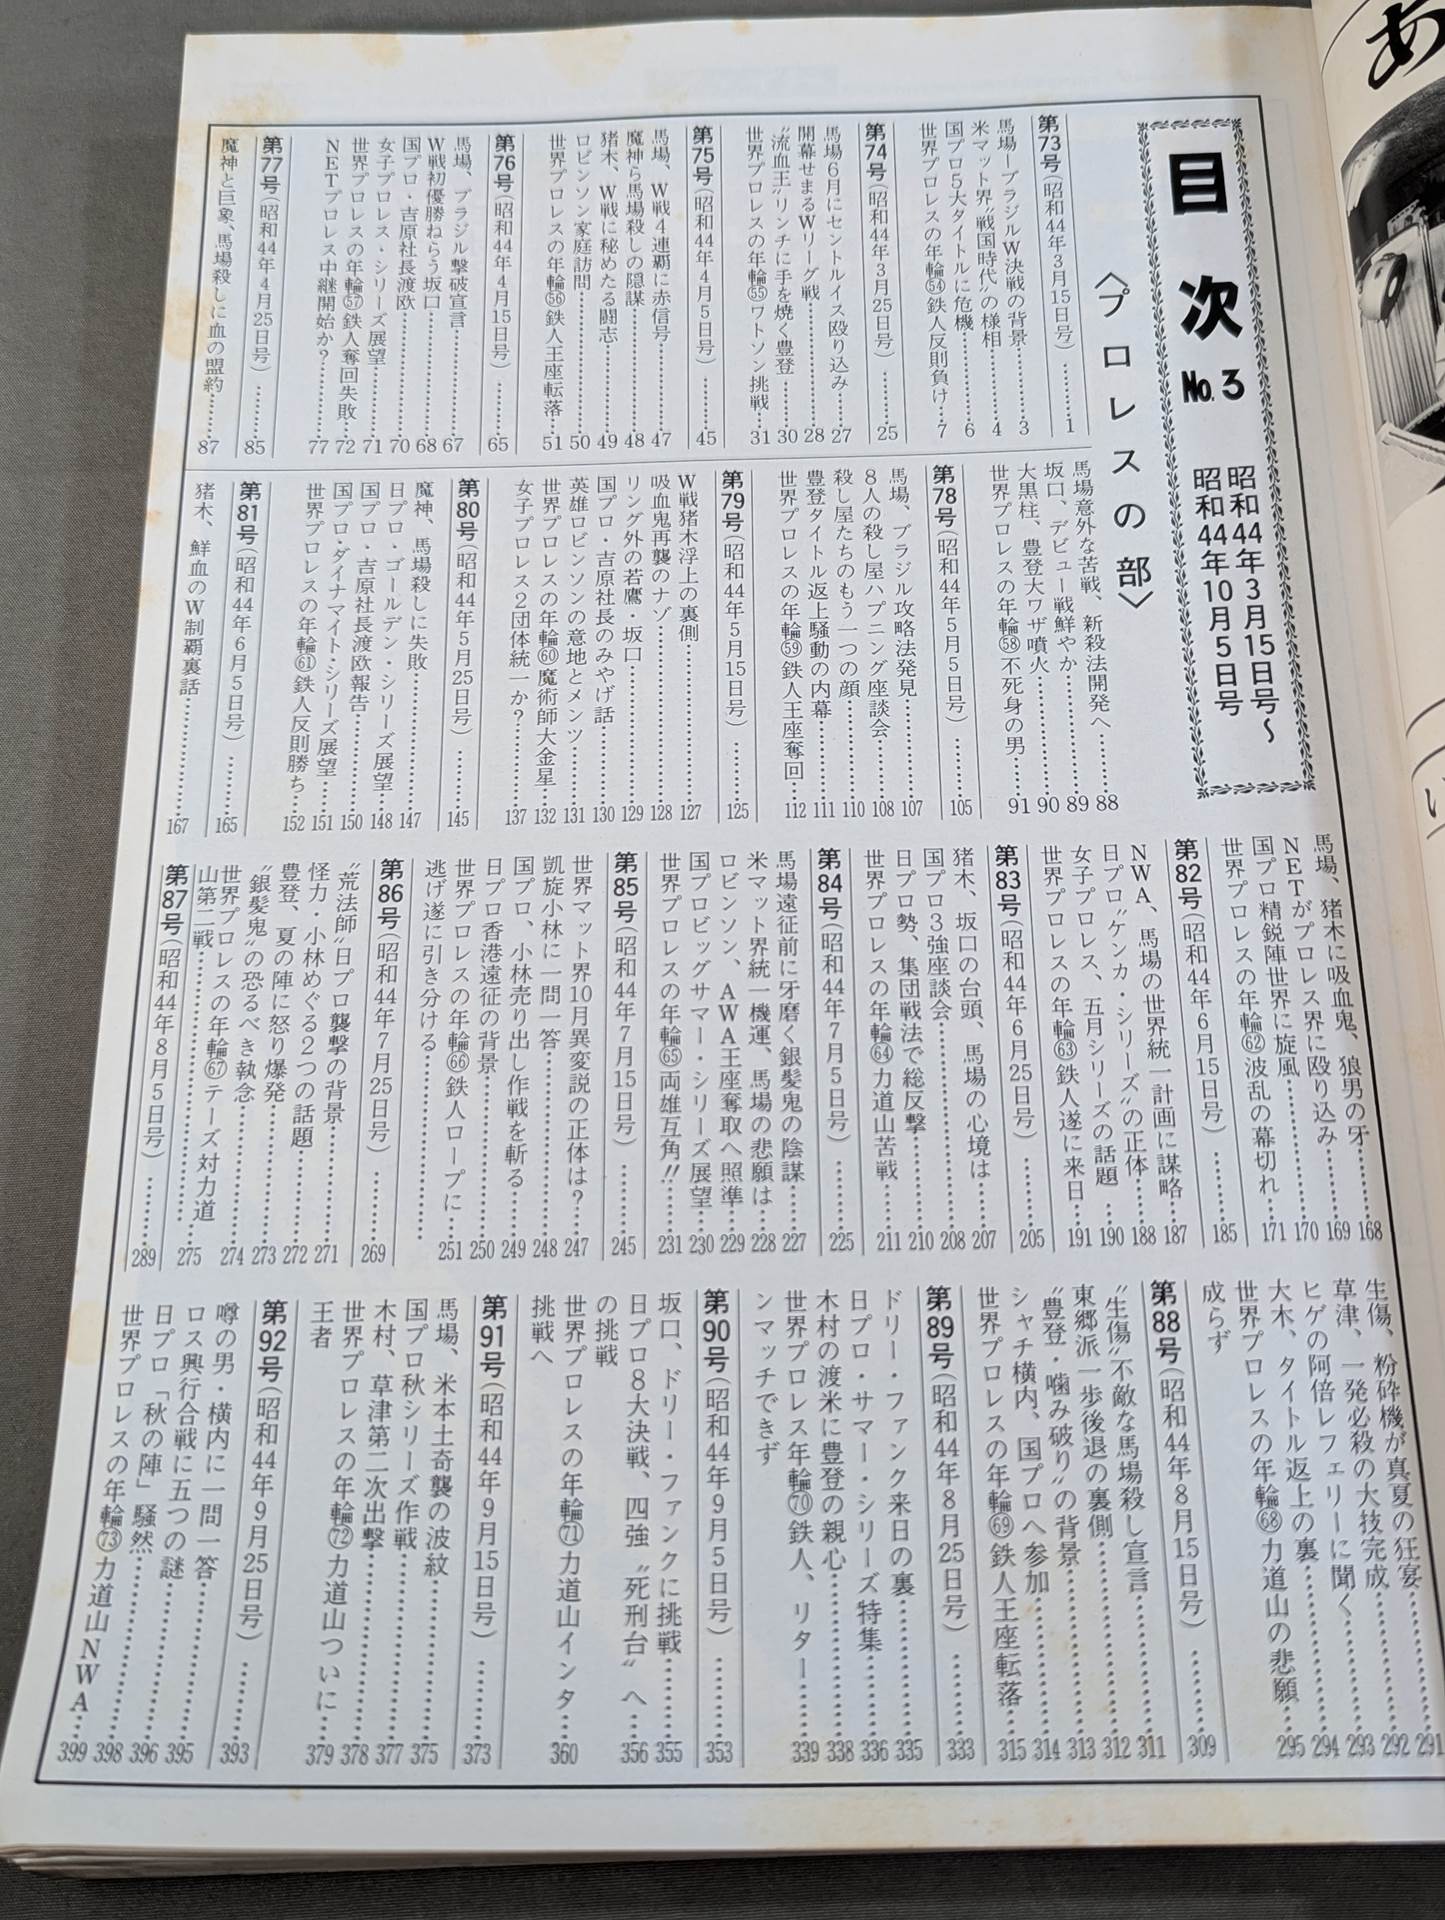 目次 No.3
昭和44年3月15日号〜
昭和44年10月5日号
〈プロレスの部〉
第73号(昭和44年3月15日号)………1
馬場ーブラジルW決戦の背景………3
米マット界“戦国時代”の様相………4
国プロ5大タイトルに危機………6
世界プロレスの年輪㊴鉄人反則負け…7
第74号(昭和44年3月25日号)………25
馬場6月にセントルイス殴り込み…27
開幕せまるWリーグ戦………28
“流血王”リンチに手を焼く豊登………30
世界プロレスの年輪55ワトソン挑戦…31
第75号(昭和44年4月5日号)………45
馬場、W戦4連覇に赤信号………47
魔神ら馬場殺しの隠謀………48
猪木、W戦に秘めたる闘志………49
ロビンソン家庭訪問………50
世界プロレスの年輪56鉄人王座転落…51
第76号(昭和44年4月15日号)………65
馬場、ブラジル撃破宣言………67
W戦初優勝ねらう坂口………68
国プロ・吉原社長渡欧………70
女子プロレス・シリーズ展望………71
世界プロレスの年輪57鉄人奪回失敗…72
NETプロレス中継開始か?………77
第77号(昭和44年4月25日号)………85
魔神と巨象、馬場殺しに血の盟約……87
馬場意外な苦戦、新殺法開発へ………88
坂口、デビュー戦鮮やか………89
大黒柱、豊登大ワザ噴火………90
世界プロレスの年輪58不死身の男……91
第78号(昭和44年5月5日号)………105
馬場、ブラジル攻略法発見………107
8人の殺し屋ハプニング座談会………108
殺し屋たちのもう一つの顔………110
豊登タイトル返上騒動の内幕………111
世界プロレスの年輪59鉄人王座奪回…112
第79号(昭和44年5月15日号)………125
W戦猪木浮上の裏側………127
吸血鬼再襲のナゾ………128
リング外の若鷹・坂口………129
国プロ・吉原社長のみやげ話………130
英雄ロビンソンの意地とメンツ………131
世界プロレスの年輪60魔術師大金星…132
女子プロレス2団体統一か?………137
第80号(昭和44年5月25日号)………145
魔神、馬場殺しに失敗………147
日プロ・ゴールデン・シリーズ展望…148
国プロ・吉原社長渡欧報告………150
国プロ・ダイナマイト・シリーズ展望…151
世界プロレスの年輪61鉄人反則勝ち…152
第81号(昭和44年6月5日号)………165
猪木、鮮血のW制覇裏話………167
馬場、猪木に吸血鬼、狼男の牙………168
NETがプロレス界に殴り込み………169
国プロ精鋭陣世界に旋風………170
世界プロレスの年輪62波乱の幕切れ…171
第82号(昭和44年6月15日号)………185
NWA、馬場の世界統一計画に謀略…187
日プロ“ケンカ・シリーズ”の正体……188
女子プロレス、五月シリーズの話題…190
世界プロレスの年輪63鉄人遂に来日…191
第83号(昭和44年6月25日号)………205
猪木、坂口の台頭、馬場の心境は……207
国プロ3強座談会………208
日プロ勢、集団戦法で総反撃………210
世界プロレスの年輪64力道山苦戦……211
第84号(昭和44年7月5日号)………225
馬場遠征前に牙磨く銀髪鬼の陰謀……227
米マット界統一機運、馬場の悲願は…228
ロビンソン、AWA王座奪取へ照準…229
国プロビッグサマー・シリーズ展望…230
世界プロレスの年輪65両雄互角!!……231
第85号(昭和44年7月15日号)………245
世界マット界10月異変説の正体は?…247
凱旋小林に一問一答………248
国プロ、小林売り出し作戦を斬る……249
日プロ香港遠征の背景………250
世界プロレスの年輪66鉄人ロープに
逃げ遂に引き分ける………251
第86号(昭和44年7月25日号)………269
“荒法師”日プロ襲撃の背景………271
怪力・小林めぐる2つの話題………272
豊登、夏の陣に怒り爆発………273
“銀髪鬼”の恐るべき執念………274
世界プロレスの年輪67テーズ対力道
山第二戦………275
第87号(昭和44年8月5日号)………289
生傷、粉砕機が真夏の狂宴………291
草津、一発必殺の大技完成………292
ヒゲの阿倍レフェリーに聞く………293
大木、タイトル返上の裏………294
世界プロレスの年輪68力道山の悲願
成らず………295
第88号(昭和44年8月15日号)………309
“生傷”不敵な馬場殺し宣言………311
東郷派一歩後退の裏側………312
“豊登・噛み破り”の背景………313
シャチ横内、国プロへ参加………314
世界プロレスの年輪69鉄人王座転落…315
第89号(昭和44年8月25日号)………333
ドリー・ファンク来日の裏………335
日プロ・サマー・シリーズ特集………336
木村の渡米に豊登の親心………338
世界プロレス年輪70鉄人、リター
ンマッチできず………339
第90号(昭和44年9月5日号)………353
坂口、ドリー・ファンクに挑戦………355
日プロ8大決戦、四強“死刑台”へ
の挑戦………356
世界プロレスの年輪71力道山インタ
挑戦へ………360
第91号(昭和44年9月15日号)………373
馬場、米本土奇襲の波紋………375
国プロ秋シリーズ作戦………377
木村、草津第二次出撃………378
世界プロレスの年輪72力道山ついに
王者………379
第92号(昭和44年9月25日号)………393
噂の男・横内に一問一答………395
ロス興行合戦に五つの謎………396
日プロ「秋の陣」騒然………398
世界プロレスの年輪73力道山NWA…399
あ